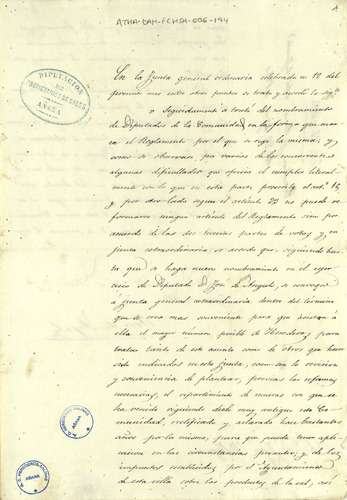 ATHA-DAH-FCHSA-006-194
DIPUTACION
DE
PROPIETARIOS DE SALES
AÑANA
En la Junta general ordinaria celebrada en 12 del
presente mes entre otros puntos se trató y acordó lo sigte
Seguidamente a traté del nombramiento
de Diputados de la Comunidad en la forma que mar-
ca el Reglamento por el que se rige la misma; y
como se observase por varios de los concurrentes
algunas dificultades que ofrecia el cumplir literal-
mente con lo que en esta parte prescribe el artº 16,
y por otro lado segun el articulo 23 no puede re-
formarse ningun articulo del Reglamento sino por
acuerdo de las dos terceras partes de votos, y en
junta extraordinaria, se acordó que, siguiendo has-
ta que se haga nuevo nombramiento en el ejer-
cicio de Diputado D. José L. Angulo, se convoque
á junta general extraordinaria dentro del término
que se crea mas conveniente para que asistan á
ella el mayor número posible de Herederos, para
tratar tanto de este asunto como de otros que han
sido indicados en esta junta, como son la revision
y conveniencia de plantear, previas las reformas
necesarias, el repartimiento de mueras con que se
ha venido siguiendo desde muy antiguo esta Co-
munidad, rectificado y aclarado hace bastantes
años por la misma, para que pueda tener apli-
cacion en las circunstancias presentes; y de los
impuestos establecidos por el Ayuntamiento
de esta villa sobre los productos de la sal, así